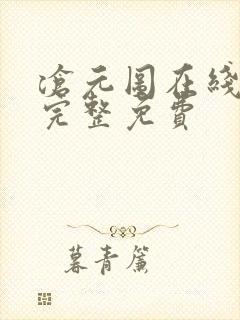 滄元圖在綫
完整免費
暮青簾